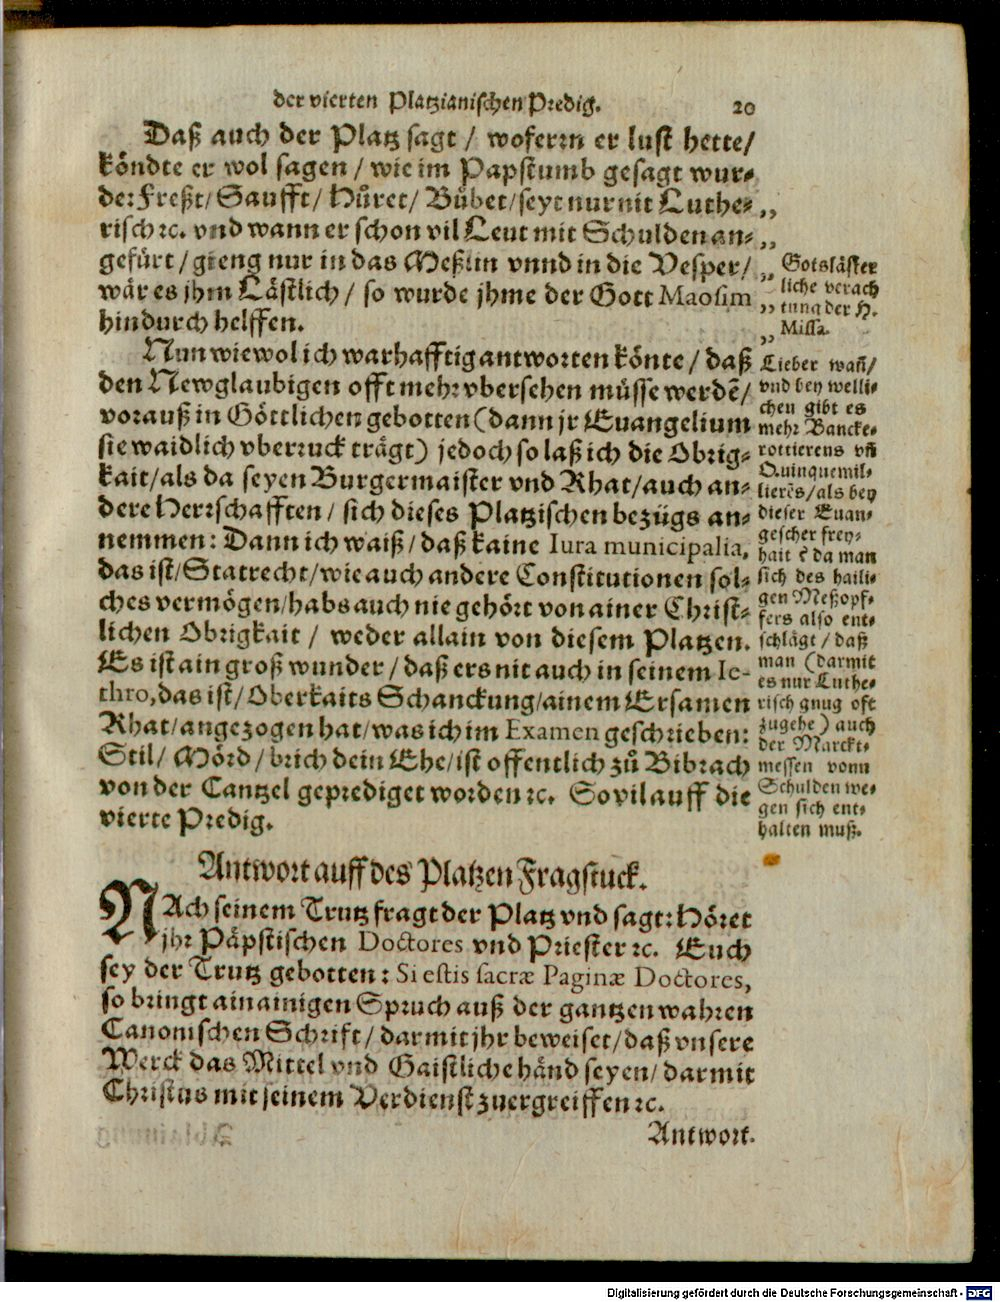 der vierten Platzianischen Predig. 20
Daß auch der Platz sagt / woferrn er lust hette/
köndte er wol sagen / wie im Papstumb gesagt wur⸗
de: Freßt/ Saufft/ Hůret/ Bůbet/ seyt nur nit Luthe⸗ „
risch ꝛc. vnd wann er schon vil Leut mit Schulden an⸗ „
gefürt / gieng nur in das Meßlin vnnd in die Vesper/ „
wär es jhm Lästlich / so wurde jhme der Gott Maosim „
hindurch helffen. „
Nun wiewol ich warhafftig antworten könte / daß
den Newglaubigen offt mehr vbersehen müsse werdẽ/
vorauß in Göttlichen gebotten (dann jr Euangelium
sie waidlich vberruck trägt) jedoch so laß ich die Obrig⸗
kait/ als da seyen Burgermaister vnd Rhat/ auch an⸗
dere Herrschafften / sich dieses Platzischen bezügs an⸗
nemmen: Dann ich waiß / daß kaine Iura municipalia,
das ist/ Statrecht/ wie auch andere Constitutionen sol⸗
ches vermögen/ habs auch nie gehört von ainer Christ⸗
lichen Obrigkait / weder allain von diesem Platzen.
Es ist ain groß wunder / daß ers nit auch in seinem Ie-
thro, das ist/ Oberkaits Schanckung/ ainem Ersamen
Rhat/ angezogen hat/ was ich im Examen geschrieben:
Stil/ Mörd / brich dein Ehe/ ist offentlich zů Bibrach
von der Cantzel geprediget worden ꝛc. So vil auff die
vierte Predig.
Gotsläster
liche verach
tung der H.
Missa.
Lieber wañ/
vnd bey welli⸗
chen gibt es
mehr Bancke⸗
rottierens vñ
Quinquernil⸗
lierẽs/ als bey
dieser Euan⸗
gescher frey⸗
hait / da man
sich des haili⸗
gen Meßopf⸗
fers also ent⸗
schlägt / daß
man (darmit
es nur Luthe⸗
risch gnug oft
zugehe) auch
der Marckt⸗
messen vonn
Schulden we⸗
gen sich ent⸗
halten muß.
Antwort auff des Platzen Fragstuck.
NAch seinem Trutz fragt der Platz vnd sagt: Höret
jhr Päpstischen Doctores vnd Priester ꝛc. Euch
sey der Trutz gebotten: Si estis sacræ Paginæ Doctores,
so bringt ain ainigen Spruch auß der gantzen wahren
Canonischen Schrift/ darmit jhr beweiset/ daß vnsere
Werck das Mittel vnd Gaistliche händ seyen/ darmit
Christus mit seinem Verdienst zuergreiffen ꝛc.
Antwort.
Digitalisierung gefördert durch die Deutsche Forschungsgemeinschaft - DFG